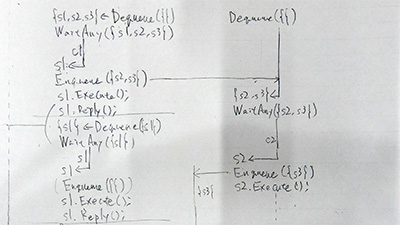 {s1,s2,s3} ← Dequeue({})
WaitAny({s1,s2,s3})
c1
s1
Enqueue({s2,s3})
s1.Execute();
s1.Reply();
{s1} ← Dequeue({s1})
WaitAny({s1})
s1
s1
(Enqueue({}))
s1.Execute();
s1.Reply();
Dequeue({})
{s2,s3}
WaitAny({s2,s3})
c2
s2
Enqueue({s3})
s2.Execute();
{s3}